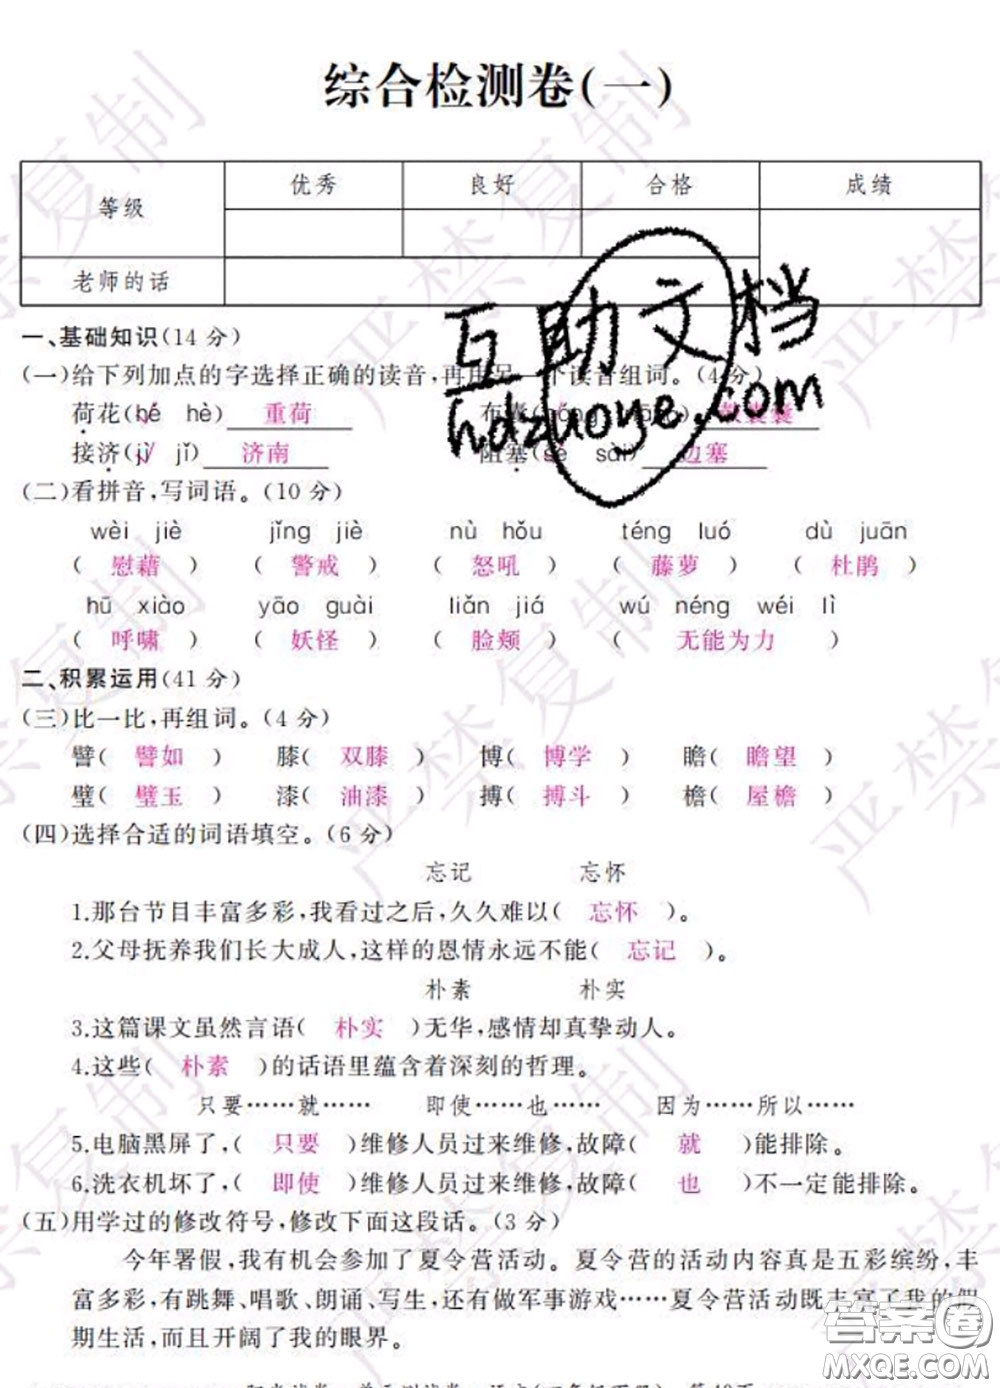 综合检测卷(一)
等级 优秀 良好 合格 成绩
老师的话
一、基础知识(14 分)
(一)给下列加点的字选择正确的读音,再用另一个读音组词。(4分)
荷花(hé hè) 重荷 布囊
接济(jì jǐ) 济南 阻塞(sè sāi) 边塞
(二)看拼音,写词语。(10 分)
wèi jiè jǐng jiè nù hǒu téng luó dù juān
( 慰藉 ) ( 警戒 ) ( 怒吼 ) ( 藤萝 ) ( 杜鹃 )
hū xiào yāo guài liǎn jiá wú néng wéi lì
( 呼啸 ) ( 妖怪 ) ( 脸颊 ) ( 无能为力 )
二、积累运用(41 分)
(三)比一比,再组词。(4 分)
譬( 譬如 ) 膝( 双膝 ) 博( 博学 ) 瞻( 瞻望 )
璧( 璧玉 ) 漆( 油漆 ) 搏( 搏斗 ) 檐( 屋檐 )
(四)选择合适的词语填空。(6 分)
忘记 忘怀
1.那台节目丰富多彩,我看过之后,久久难以( 忘怀 )。
2.父母抚养我们长大成人,这样的恩情永远不能( 忘记 )。
朴素 朴实
3.这篇课文虽然言语( 朴实 )无华,感情却真挚动人。
4.这些( 朴素 )的话语里蕴含着深刻的哲理。
只要……就…… 即使……也…… 因为……所以……
5.电脑黑屏了,( 只要 )维修人员过来维修,故障( 就 )能排除。
6.洗衣机坏了,( 即使 )维修人员过来维修,故障( 也 )不一定能排除。
(五)用学过的修改符号,修改下面这段话。(3 分)
今年署假,我有机会参加了夏令营活动。夏令营的活动内容真是五彩缤纷,丰
富多彩,有跳舞、唱歌、朗诵、写生,还有做军事游戏……夏令营活动既丰富了我的假
期生活,而且开阔了我的眼界。
互助文档
hdzuoye.com
严禁复制
答案圈
MXQE.COM